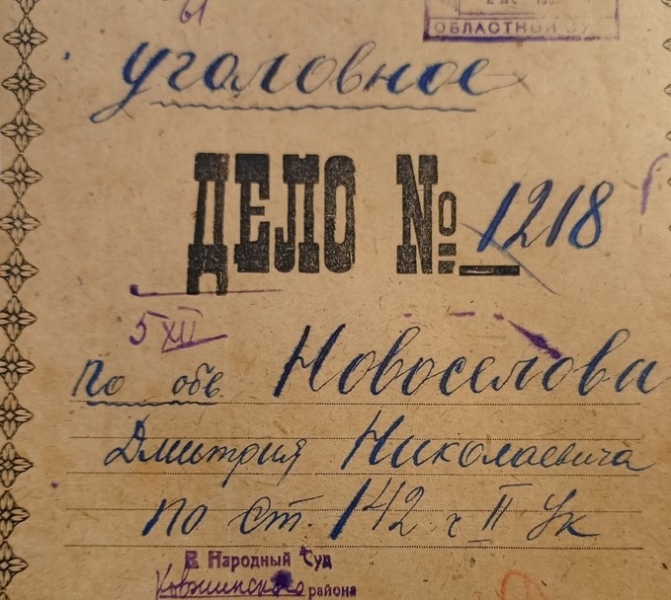 61
ОБЛАСТНОЙ
уголовное
ДЕЛО № 1218
5 XII
По обв. Новоселова
Дмитрия Николаевича
по ст. 142 ч II УК
В Народный Суд
района